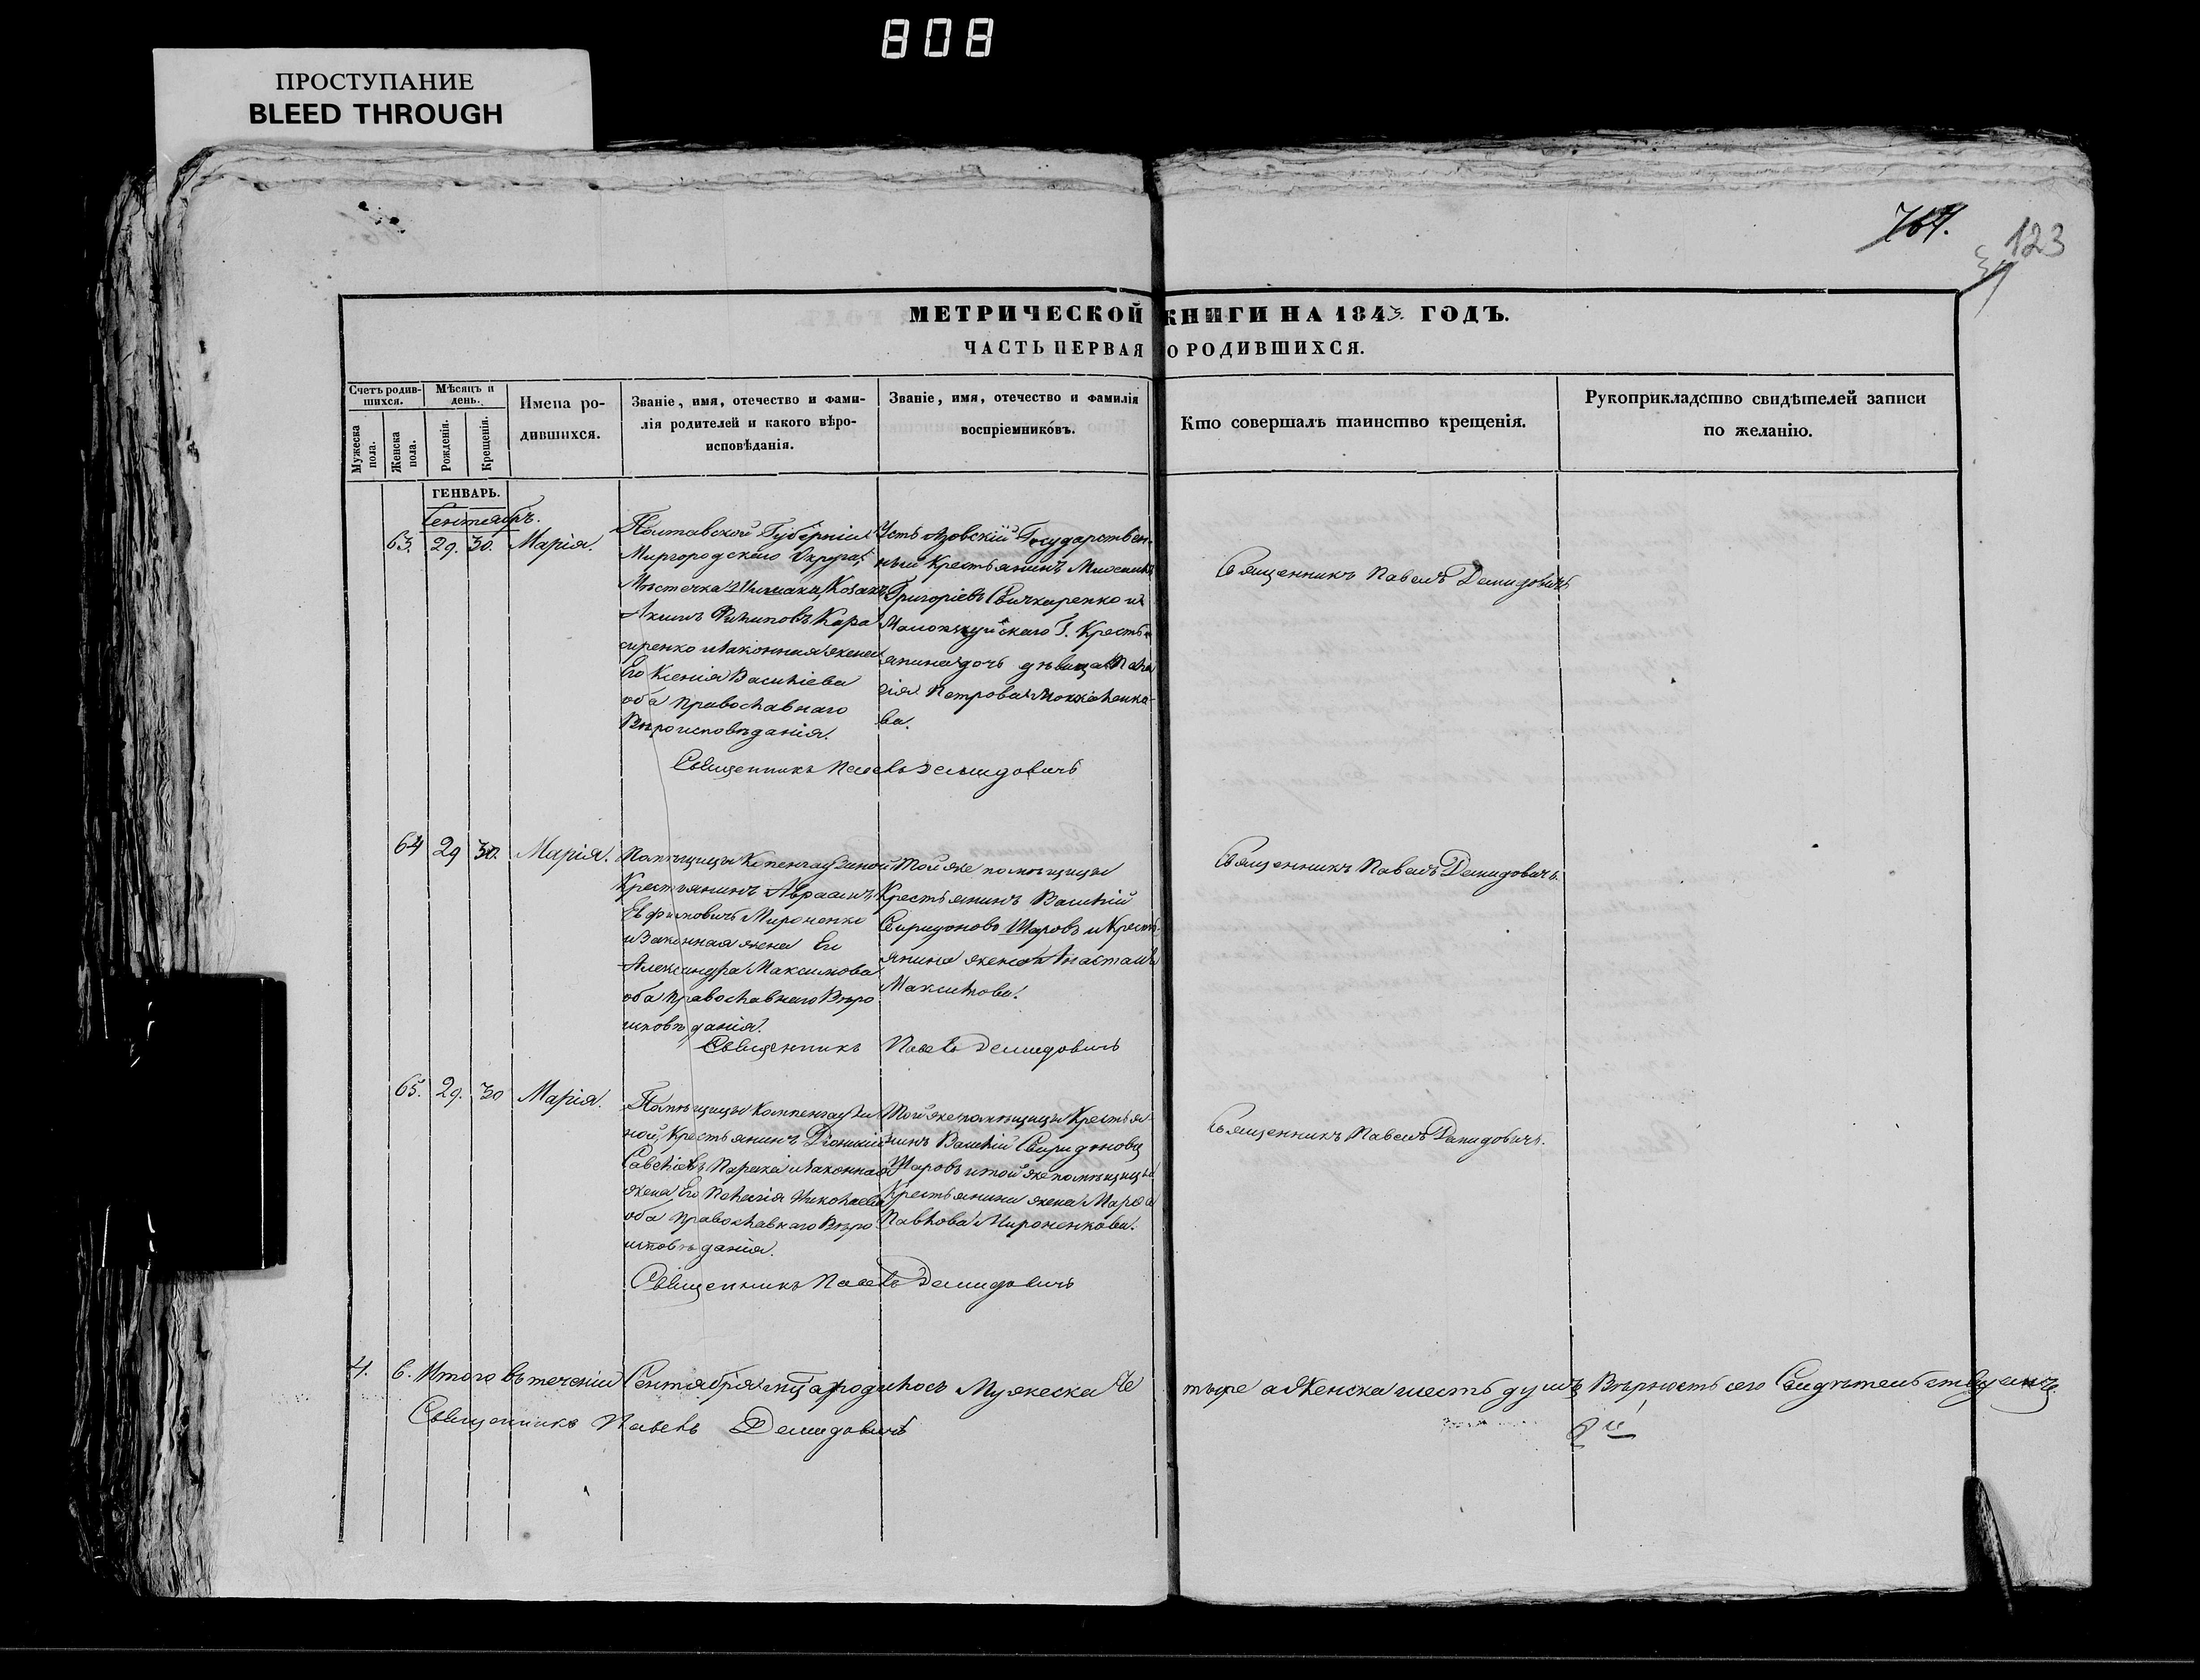 808
ПРОСТУПАНИЕ
BLEED THROUGH
764.
123
МЕТРИЧЕСКОЙ КНИГИ НА 1843. ГОДЪ.
ЧАСТЬ ПЕРВАЯ О РОДИВШИХСЯ.
Счетъ родив-
шихся.
Мужеска
пола.
Женска
пола.
Мѣсяцъ и
день.
Рожденія.
Крещенія.
Имена ро-
дившихся.
Званіе, имя, отечество и фами-
лія родителей и какого вѣро-
исповѣданія.
Званіе, имя, отечество и фамилія
воспріемниковъ.
Кто совершалъ таинство крещенія.
Рукоприкладство свидѣтелей записи
по желанію.
ГЕНВАРЬ.
Сентябрь.
63. 29. 30. Марія.
Полтавской Губерніи
Миргородскаго Округа,
Мѣстечка Шишака, Козакъ
Акимъ Филиповъ Кара
сиренко и законная жена
Его Ксенія Василіева
оба православнаго
Вѣроисповѣданія.
Усть Азовскій Государствен-
ный Крестьянинъ
Григоріевъ Свичкаренко и
Г. Крестья
янина дочь дѣвица Пела
гія Петрова
ва.
Священникъ Павелъ Демидовичъ
Священникъ Павелъ Демидовичъ
64 29 30. Марія.
Помѣщицы
Крестьянинъ Авраамъ
Ефимовичъ Мироненко
и Законная жена Его
Александра Максимова
оба православнаго Вѣро
исповѣданія.
Той же помѣщицы
Крестьянинъ Василій
Свиридоновъ Шаровъ и Кресть
янина жена Анастасія
Максимова.
Священникъ Павелъ Демидовичъ.
Священникъ Павелъ Демидовичъ
65. 29. 30 Марія.
Помѣщицы Компенгаузи
ной, Крестьянинъ Діонисій
Савеліевъ и законная
жена Его Пелагія Николаева
оба православнаго Вѣро
исповѣданія.
Той же помѣщицы Крестья
нинъ Василій Свиридоновъ
Шаровъ и той же помѣщицы
Крестьянина жена Марѳа
Павлова Мироненкова.
Священникъ Павелъ Демидовичъ.
Священникъ Павелъ Демидовичъ
4. 6. Итого въ теченіи Сентября мца родилось Мужеска Че
тыре а Женска шесть душъ Вѣрность сего Свидѣтельствуемъ
Священникъ Павелъ Демидовичъ